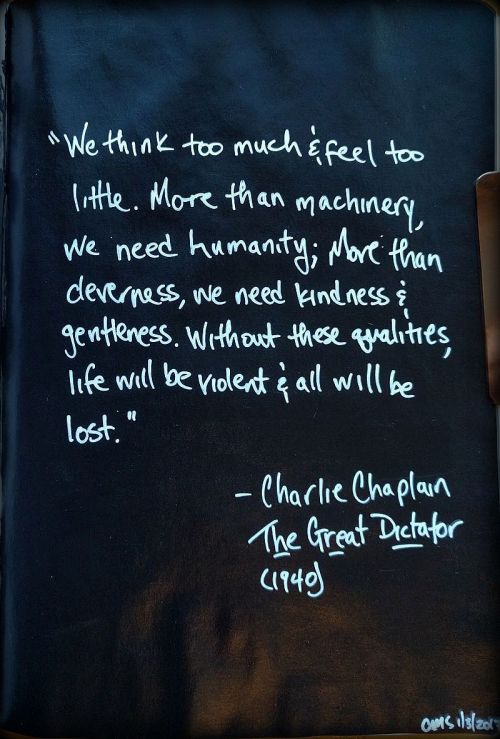 "We think too much & feel too
little. More than machinery,
we need humanity; More than
cleverness, we need kindness &
gentleness. Without these qualities,
life will be violent & all will be
lost."
- Charlie Chaplain
The Great Dictator
(1940)